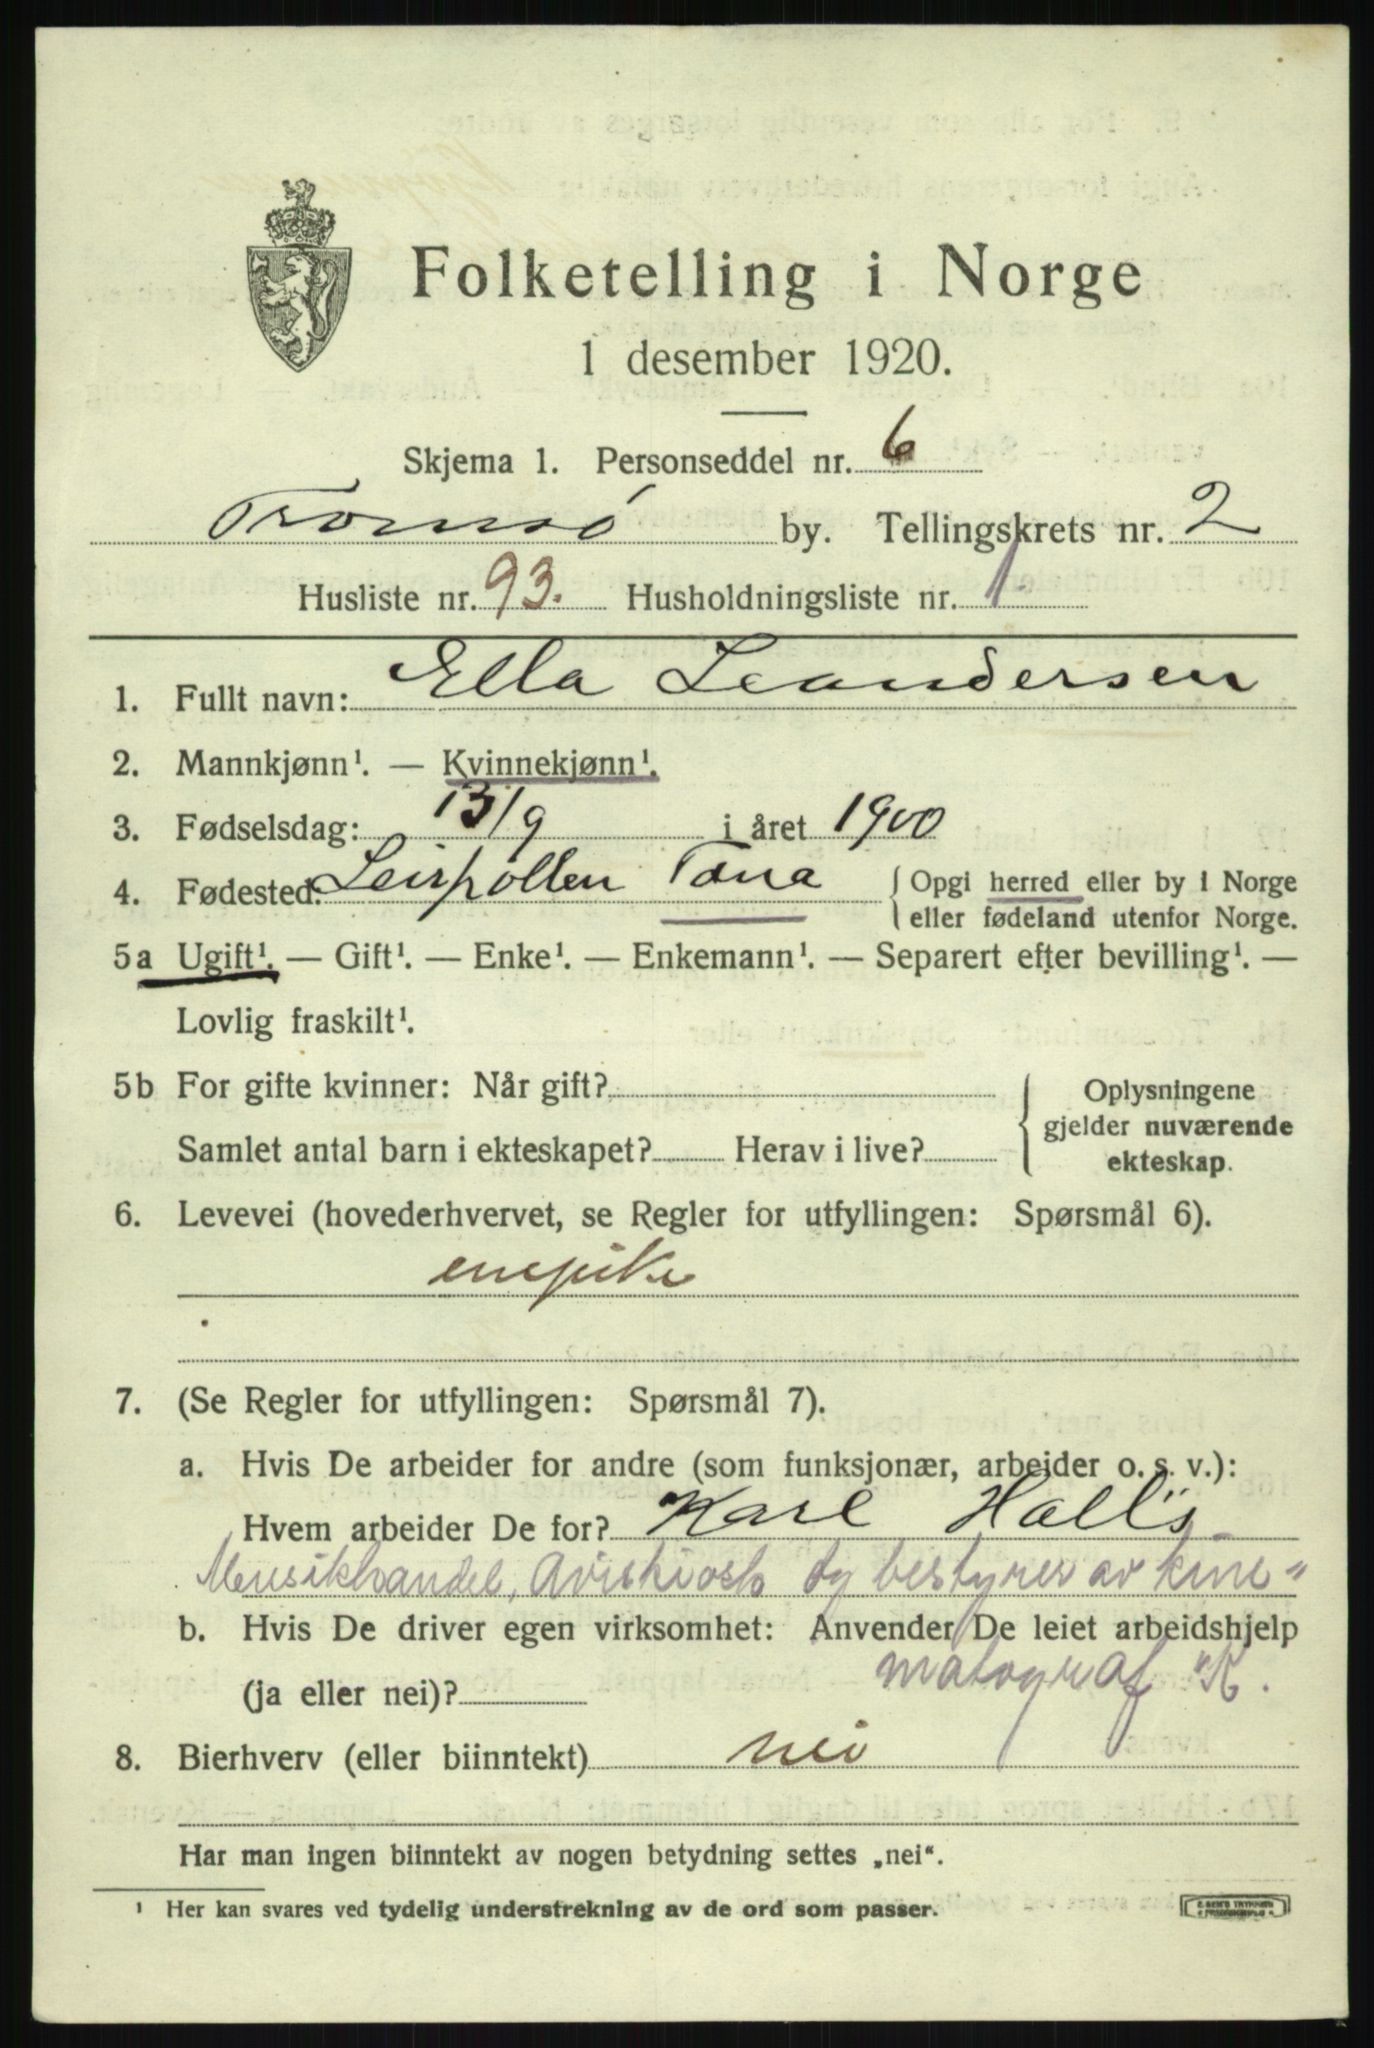 Folketelling i Norge
1 desember 1920.
Skjema 1. Personseddel nr. 6
Tromsø by. Tellingskrets nr. 2
Husliste nr. 93. Husholdningsliste nr. 1.
1. Fullt navn: Ella Leandersen
2. Mannkjønn¹. — Kvinnekjønn¹.
3. Fødselsdag: 13/9 i året 1900
4. Fødested: Leirpollen Tana { Opgi herred eller by i Norge
eller fødeland utenfor Norge.
5a Ugift¹. — Gift¹. — Enke¹. — Enkemann¹. — Separert efter bevilling¹. —
Lovlig fraskilt¹.
5b For gifte kvinner: Når gift?
Samlet antal barn i ekteskapet? Herav i live?
{ Oplysningene
gjelder nuværende
ekteskap.
6. Levevei (hovederhvervet, se Regler for utfyllingen: Spørsmål 6).
enepike
7. (Se Regler for utfyllingen: Spørsmål 7).
a. Hvis De arbeider for andre (som funksjonær, arbeider o. s. v.):
Hvem arbeider De for? Karl Hall's
Musikhandel, Aviskiosk og bestyrer av kine-
b. Hvis De driver egen virksomhet: Anvender De leiet arbeidshjelp
matograf
(ja eller nei)?
8. Bierhverv (eller biinntekt) nei
Har man ingen biinntekt av nogen betydning settes „nei“.
¹ Her kan svares ved tydelig understrekning av de ord som passer.